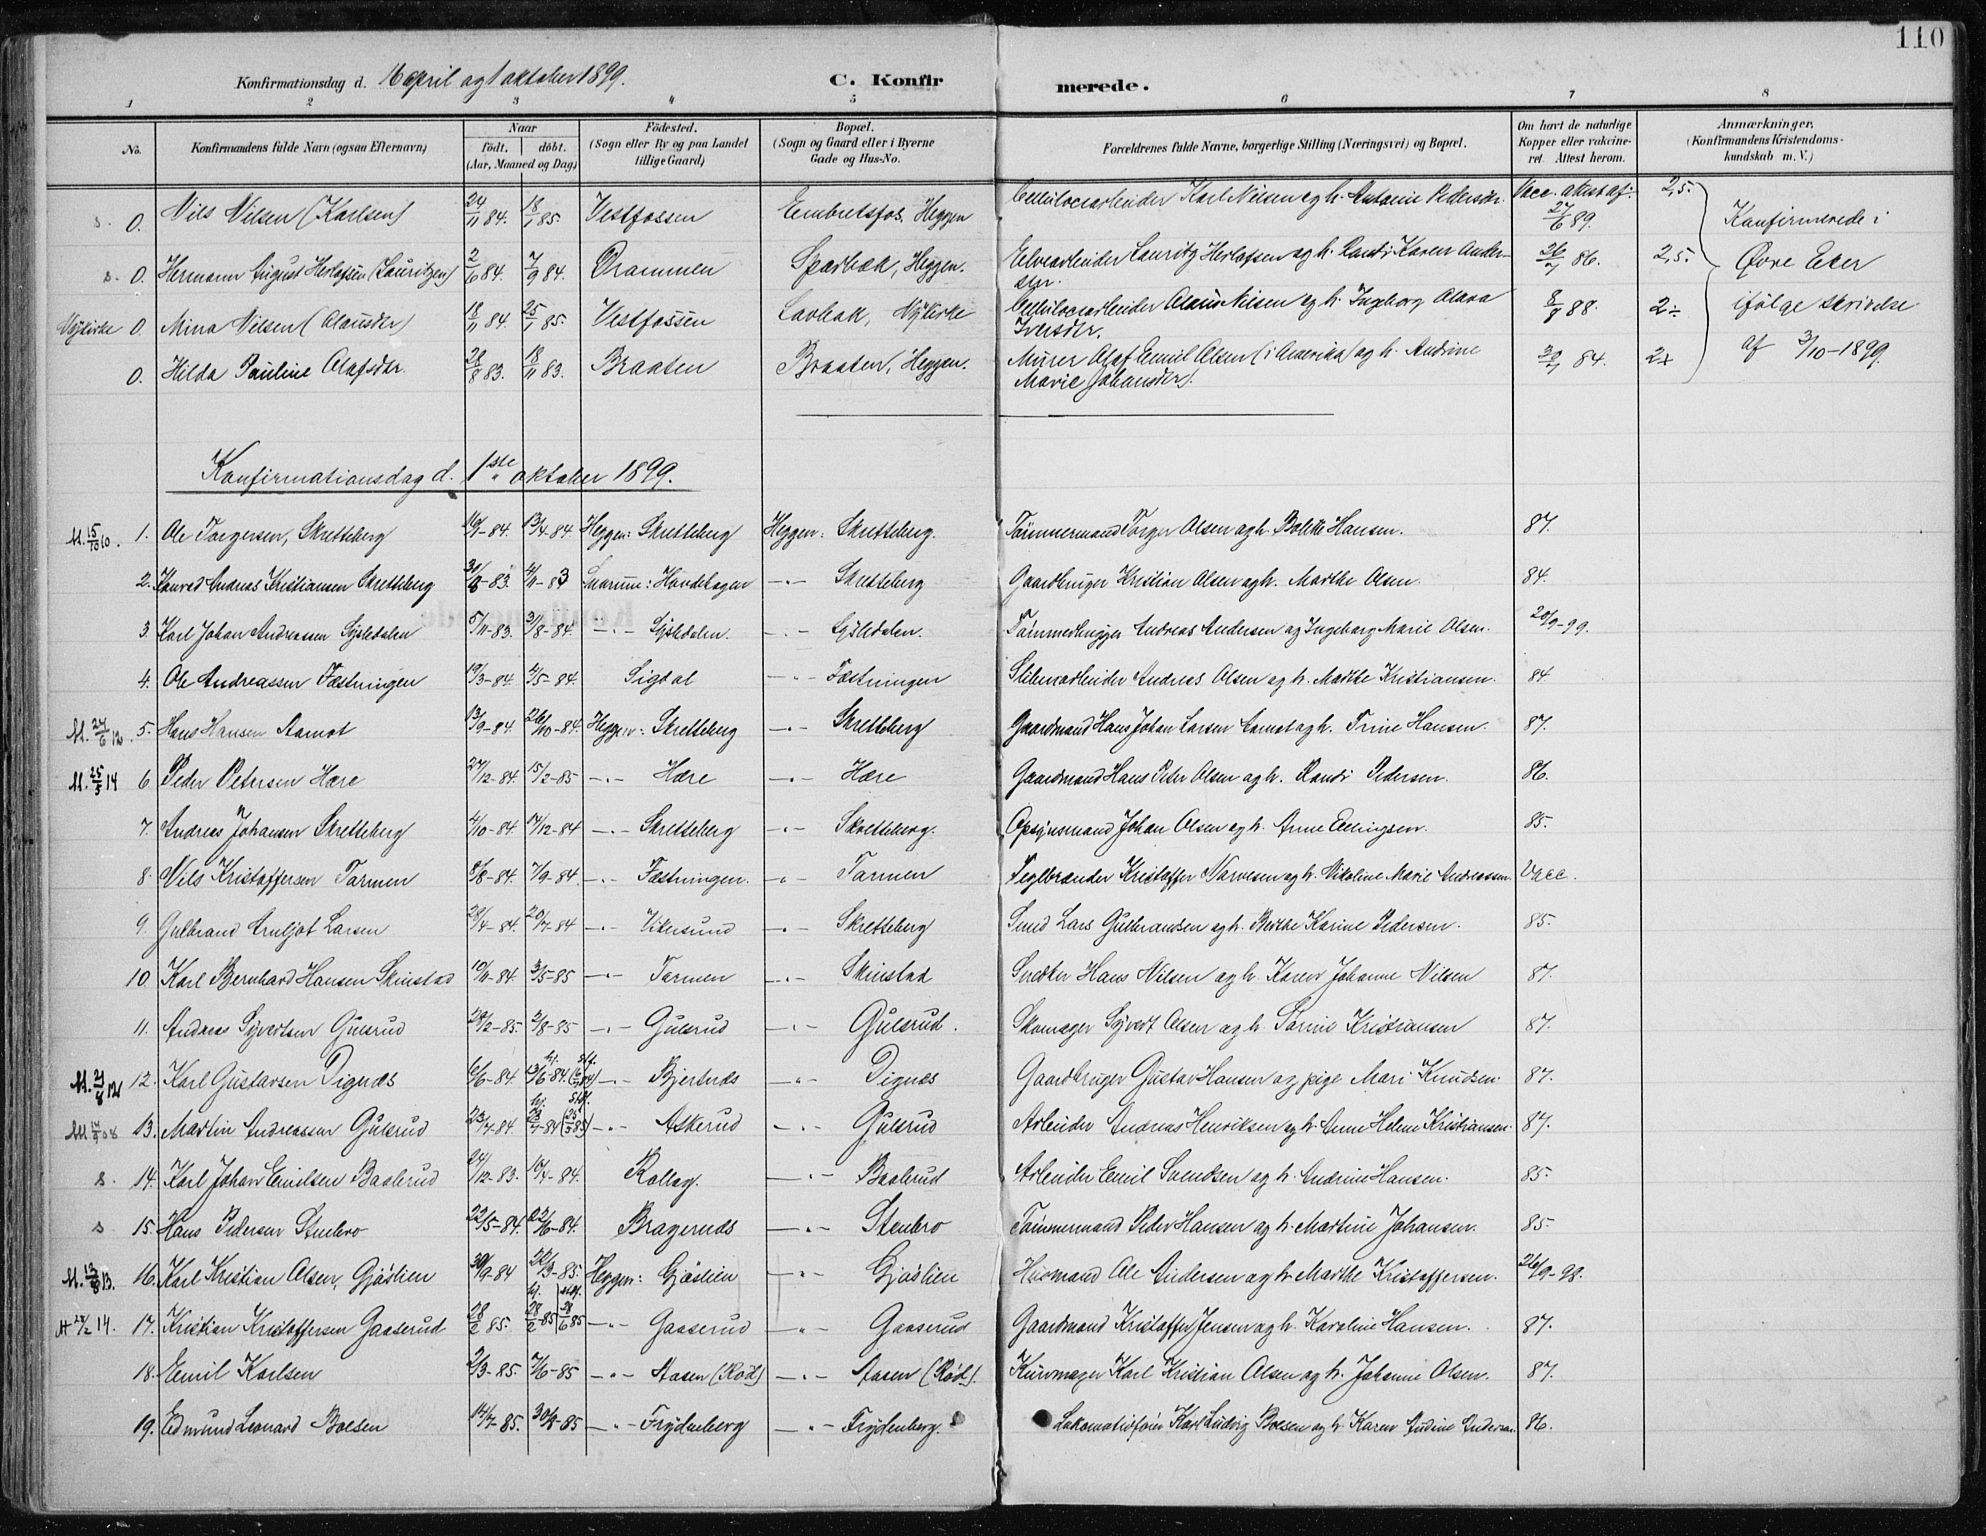 110
Konfirmationsdag d. 16 april og 1 oktober 1899.
C. Konfirmerede.
1 2 3 4 5 6 7 8
No. Konfirmandens fulde Navn (ogsaa Efternavn) Naar født. døbt. (Aar, Maaned og Dag) Fødested. (Sogn eller By og paa Landet tillige Gaard) Bopæl. (Sogn og Gaard eller i Byerne Gade og Hus-No. Forældrenes fulde Navne, borgerlige Stilling (Næringsvei) og Bopæl. Om havt de naturlige Kopper eller vakcineret. Attest herom. Anmærkninger, (Konfirmandens Kristendomskundskab m. V.)
s. 0. Nils Nilsen (Karlsen) 24/11 84. 18/1 85. Vestfossen Embretsfos, Heggen Cellulocearbeider Karl Nilsen og h. Antonie Pedersdr. Vacc. attest af 27/6 89. 2,5.
s. 0. Hermann August Herlofsen (Lauritzen) 2/6 84. 7/9 84. Drammen Sparbæk, Heggen. Elvearbeider Lauritz Herlofsen og h. Randi Karen Andersdr. 26/7 86. 2,5.
Nykirke 0. Mina Nilsen (Olausdr) 18/11 84. 25/1 85. Vestfossen Lovbak, Nykirke Cellulocearbeider Olaus Nilsen og h. Ingeborg Olava Iversdtr. 8/9 88. 2÷
0. Hilda Pauline Olafsdtr. 28/8 83. 18/11 83. Braaten Braaten, Heggen. Murer Olaf Emil Olsen (i Amerika) og h. Andrine Marie Johansdtr. 30/7 84. 2+
Konfirmerede i Øvre Eker ifølge skrivelse af 3/10-1899.
Konfirmationsdag d. 1ste oktober 1899.
M. 15/10 10. 1. Ole Torgersen, Skretteberg 16/1-84. 13/4-84 Heggen: Skretteberg Heggen: Skretteberg. Tømmermand Torger Olsen og h. Bolette Hansen. 87.
2. Konrad Andreas Kristiansen Skretteberg 31/8-83. 4/11-83 Snarum: Hovdehagen —"— Skretteberg Gaardbruger Kristian Olsen og h. Marthe Olsen. 84.
3. Karl Johan Andreassen Lysledalen 5/11-83. 3/8-84. —"— Lysledalen. —"— Lysledalen. Tømmerhugger Andreas Andersen og Ingeborg Marie Olsen. 20/9-99.
4. Ole Andreassen Fæstningen 19/3-84. 4/5-84. Sigdal —"— Fæstningen Sliberiarbeider Andreas Olsen og h. Marthe Kristiansen. 84
M. 24/6 12. 5. Hans Hansen Aamot 13/9-84. 26/10-84. Heggen: Skretteberg —"— Skretteberg Gaardmand Hans Johan Larsen Aamot og h. Trine Hansen. 87.
M. 25/5 14 6. Peder Petersen Hære 27/12-84. 15/2-85 —"— Hære —"— Hære Gaardmand Hans Peter Olsen og h. Randi Pedersen. 86.
7. Andreas Johansen Skretteberg 4/10-84. 17/12-84 —"— Skretteberg —"— Skretteberg. Opsynsmand Johan Olsen og h. Anne Ellingsen. 85.
8. Nils Kristoffersen Tormen 8/8-84. 7/9-84. —"— Fæstningen. —"— Tormen Teglbrænder Kristoffer Narvesen og h. Nikoline Marie Andreassen. Vacc.
9. Gulbrand Arnljot Larsen 28/4-84. 20/7-84 —"— Vikersund —"— Skretteberg Smed Lars Gulbrandsen og h. Berthe Karine Pedersen. 85.
10. Karl Bernhard Hansen Skinstad 10/11-84. 3/5-85 —"— Tormen —"— Skinstad Snedker Hans Nilsen og h. Karen Johanne Nilsen 87.
11. Andreas Syvertsen Gulsrud 28/2-85. 2/8-85 —"— Gulsrud —"— Gulsrud. Skomager Syvert Olsen og h. Karine Kristiansen 87.
M. 21/8 12 12. Karl Gustavsen Dignæs 6/6-84. —"— Bjertnæs —"— Dignæs Gaardbruger Gustav Hansen og pige Mari Knudsen 87.
13. Martin Andreassen Gulsrud 23/7-84. —"— Askerud —"— Gulsrud Arbeider Andreas Henriksen og h. Anne Helene Kristiansen. 87.
s. 14. Karl Johan Emilsen Baalerud 24/12-83. 14/4-84. Rollag. —"— Baalerud Arbeider Emil Svendsen og h. Andrine Hansen. 85.
s 15. Hans Pedersen Stenbro 22/5-84. 22/6-84. Bragernæs —"— Stenbro Tømmermand Peder Hansen og h. Martine Johansen. 85.
M. 13/8 13. 16. Karl Kristian Olsen, Gjøslien 30/9-84 22/3-85. Heggen: Gjøslien —"— Gjøslien Husmand Ole Andersen og h. Marthe Kristoffersen. 26/9-98.
M 28/2 14. 17. Kristian Kristoffersen Gaaserud 28/2 85. hj. 28/2-85 stdf. 28/6 85 —"— Gaaserud —"— Gaaserud Gaardmand Kristoffer Jensen og h. Karoline Hansen. 87.
18. Emil Karlsen 2/3-85. 7/6-85 —"— Aasen (Rød) —"— Aasen (Rød). Kurvmager Karl Kristian Olsen og h. Johanne Olsen. 87.
19. Edmund Leonard Boesen 14/7-85. 30/8-85 —"— Frydenberg —"— Frydenberg. Lokomotivfører Karl Ludvig Boesen og h. Karen Andine Andersen. 86.